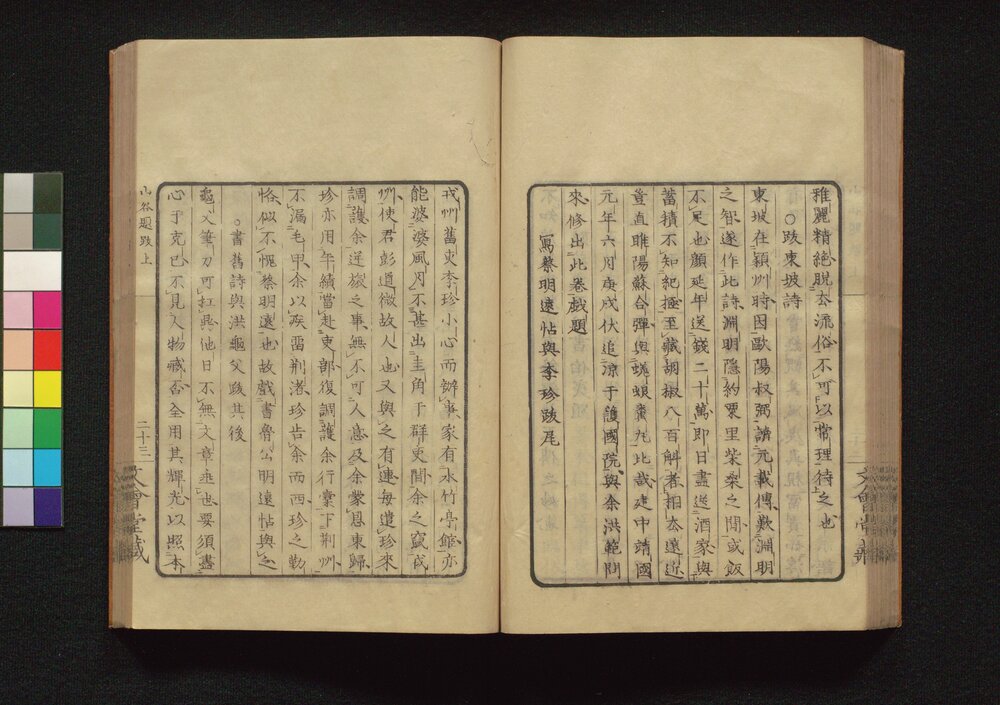 雅麗精絕脫去流俗不可以常理待之也
○跋東坡詩
東坡在潁州時因歐陽叔弼讀元載傳歎淵明
之智遂作此詩淵明隱約栗里柴桑之間或飯
不足也顏延年送錢二十萬即日盡送酒家與
蓄積不知紀極至藏胡椒八百斛者相去遠近
豈直睢陽蘇合彈與蜣蜋糞丸比哉建中靖國
元年六月庚戌伏追涼于護國院與余洪範問
來修出此卷戲題
寫蔡明遠帖與李珍跋尾
戎州舊吏李珍小心而辦事家有水竹亭館亦
能婆婆風月不甚出圭角于群吏間余之竄戎
州使君彭道微故人也又與之有連每遣珍來
調護余逆旅之事無不可人意及余蒙恩東歸
珍亦用年績當赴吏部復調護余行橐下荆州
不漏毛甲余以疾留荆渚珍告余而西珍之勤
恪似不愧蔡明遠也故戲書魯公明遠帖與之
○書舊詩與洪龜父跋其後
龜父筆力可扛鼎他日不無文章垂世要須盡
心于克己不見人物臧否全用其輝光以照本
山谷題跋上
二十三
文會堂藏
文會堂藏